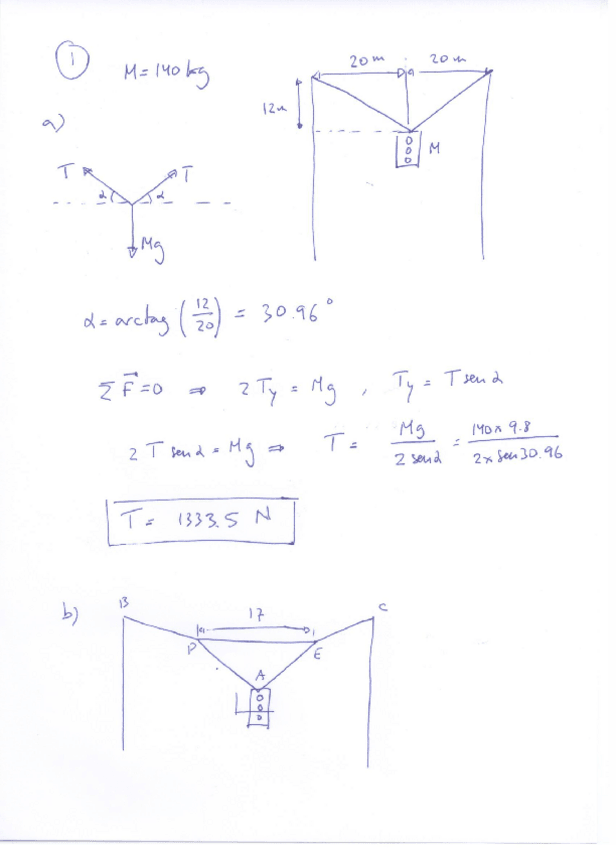 1
M = 140 kg
20 m 20 m
12 m
M
a)
T T
α α
Mg
α = arctag (12/20) = 30.96°
Σ F⃗ = 0 ⇒ 2 Ty = Mg , Ty = T sen α
2 T sen α = Mg ⇒ T = Mg / 2 sen α = 140 x 9.8 / 2 x sen 30.96
T = 1333.5 N
b)
B C
17
D E
A